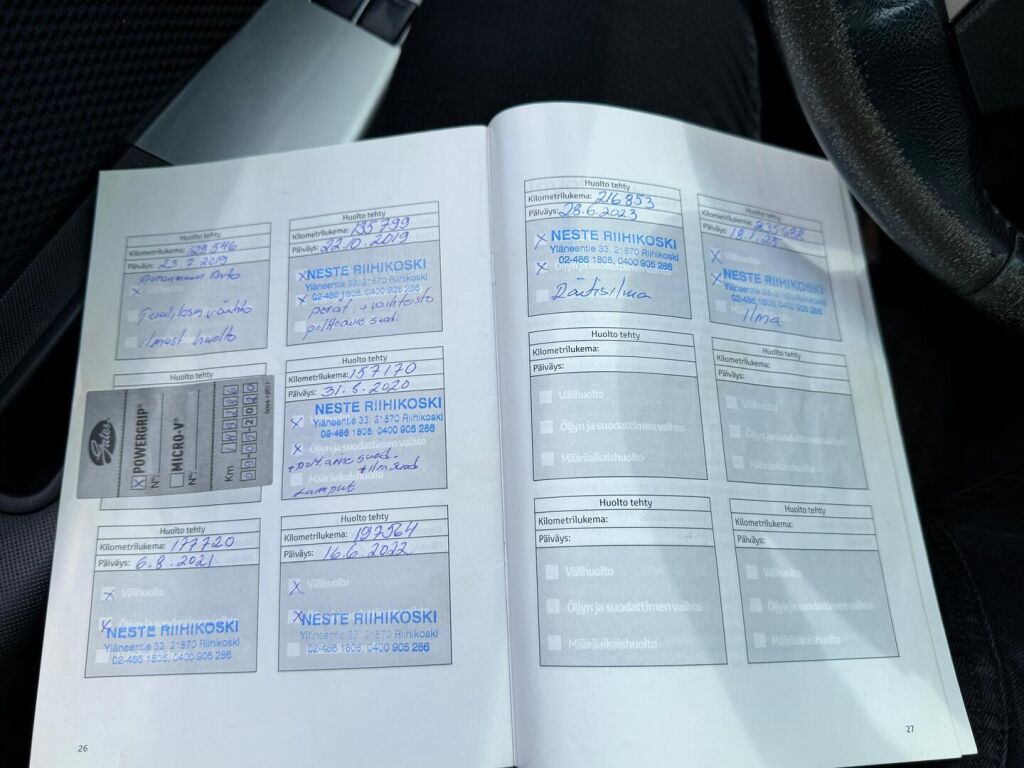 Huolto tehty
Kilometrilukema: 129546
Päiväys: 23.7.2019
ilmast huolto
Huolto tehty
Kilometrilukema: 135799
Päiväys: 22.10.2019
NESTE RIIHIKOSKI
Yläneentie 33, 21870 Riihikoski
02-486 1805, 0400 905 286
perät + vaihteisto
polttoaine suod.
Huolto tehty
Gates
POWERGRIP®
Nº:
MICRO-V®
Nº:
Km
Huolto tehty
Kilometrilukema: 157170
Päiväys: 31.8.2020
NESTE RIIHIKOSKI
Yläneentie 33, 21870 Riihikoski
02-486 1805, 0400 905 286
Öljyn ja suodattimen vaihto
+ilm suod
Lamput
Huolto tehty
Kilometrilukema: 177720
Päiväys: 6.8.2021
Välihuolto
NESTE RIIHIKOSKI
Yläneentie 33, 21870 Riihikoski
02-486 1805, 0400 905 286
Huolto tehty
Kilometrilukema: 197564
Päiväys: 16.6.2022
Välihuolto
NESTE RIIHIKOSKI
Yläneentie 33, 21870 Riihikoski
02-486 1805, 0400 905 286
26
Huolto tehty
Kilometrilukema: 216853
Päiväys: 28.6.2023
NESTE RIIHIKOSKI
Yläneentie 33, 21870 Riihikoski
02-486 1805, 0400 905 286
Öljyn ja suodattimen vaihto
Raitisilma
Huolto tehty
Kilometrilukema:
Päiväys: 18.1.25
Välihuolto
NESTE RIIHIKOSKI
Yläneentie 33, 21870 Riihikoski
02-486 1805, 0400 905 286
Ilma
Huolto tehty
Kilometrilukema:
Päiväys:
Välihuolto
Öljyn ja suodattimen vaihto
Määräaikaishuolto
Huolto tehty
Kilometrilukema:
Päiväys:
Välihuolto
Öljyn ja suodattimen vaihto
Määräaikaishuolto
Huolto tehty
Kilometrilukema:
Päiväys:
Välihuolto
Öljyn ja suodattimen vaihto
Määräaikaishuolto
Huolto tehty
Kilometrilukema:
Päiväys:
Välihuolto
Öljyn ja suodattimen vaihto
Määräaikaishuolto
27